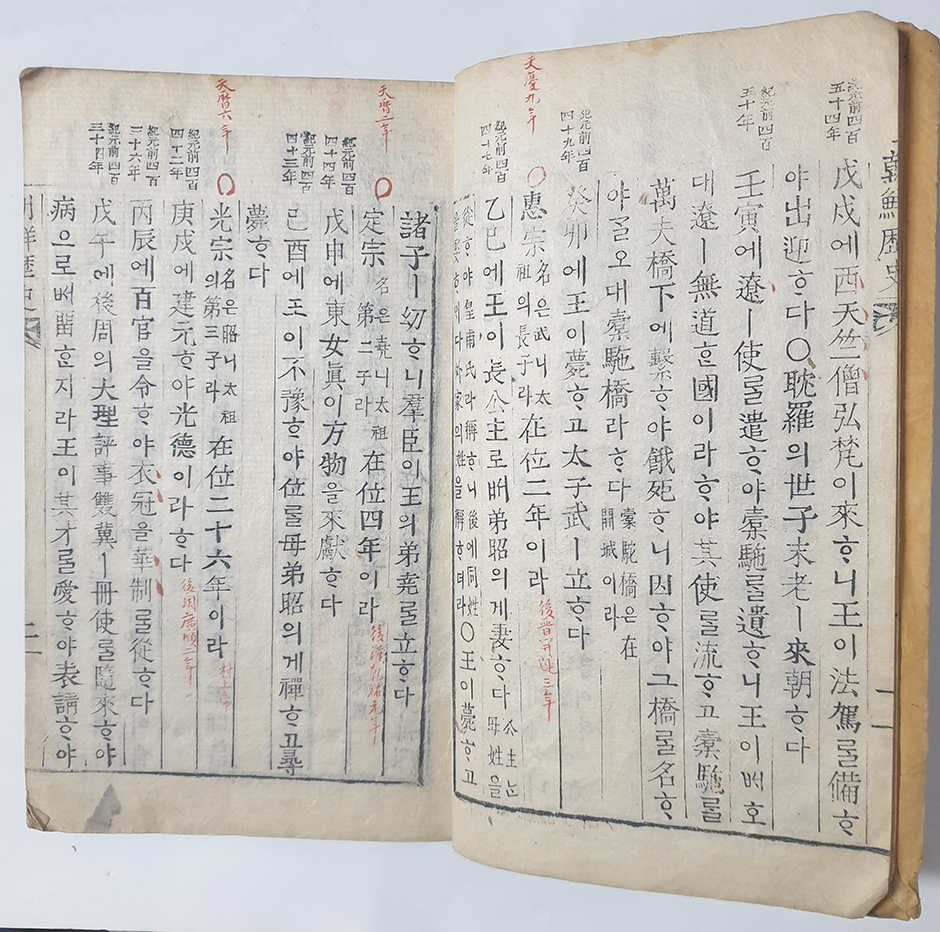 朝鮮歷史
紀元前四百五十四年
戊戌에西天竺僧弘梵이來ᄒᆞ니王이法駕ᄅᆞᆯ備ᄒᆞ
야出迎ᄒᆞ다○耽羅의世子末老ㅣ來朝ᄒᆞ다
紀元前四百五十年
壬寅에遼ㅣ使ᄅᆞᆯ遣ᄒᆞ야槖駞ᄅᆞᆯ遺ᄒᆞ니王이ᄡᅥ호
대遼ㅣ無道ᄒᆞᆫ國이라ᄒᆞ야其使ᄅᆞᆯ流ᄒᆞ고槖駞ᄅᆞᆯ
萬夫橋下에繫ᄒᆞ야餓死ᄒᆞ니因ᄒᆞ야그橋ᄅᆞᆯ名ᄒᆞ
야ᄀᆞᆯ오대槖駞橋라ᄒᆞ다槖駝橋은在開城이라
紀元前四百四十九年
癸卯에王이薨ᄒᆞ고太子武ㅣ立ᄒᆞ다
天慶九年
○惠宗名은武니太祖의長子라在位二年이라後晋開運三年
紀元前四百四十七年
乙巳에王이長公主로ᄡᅥ弟昭의게妻ᄒᆞ다公主는母姓을
從ᄒᆞ야皇甫氏라稱ᄒᆞ니後에同姓을娶ᄒᆞ다外家의姓을稱ᄒᆞ더라○王이薨ᄒᆞ고
諸子ㅣ幼ᄒᆞ니羣臣이王의弟堯ᄅᆞᆯ立ᄒᆞ다
天曆二年
○定宗名은堯니太祖第二子라在位四年이라後漢乾祐元年
紀元前四百四十四年
戊申에東女眞이方物을來獻ᄒᆞ다
紀元前四百四十三年
己酉에王이不豫ᄒᆞ야位ᄅᆞᆯ母弟昭의게禪ᄒᆞ고尋
薨ᄒᆞ다
天曆六年
○光宗名은昭니太祖의第三子라在位二十六年이라
紀元前四百四十二年
庚戌에建元ᄒᆞ야光德이라ᄒᆞ다後周廣順二年
紀元前四百三十六年
丙辰에百官을令ᄒᆞ야衣冠을華制ᄅᆞᆯ從ᄒᆞ다
紀元前四百三十四年
戊午에後周의大理評事雙冀ㅣ冊使ᄅᆞᆯ隨來ᄒᆞ야
病으로ᄡᅥ留ᄒᆞᆫ지라王이其才ᄅᆞᆯ愛ᄒᆞ야表請ᄒᆞ야
朝鮮歷史